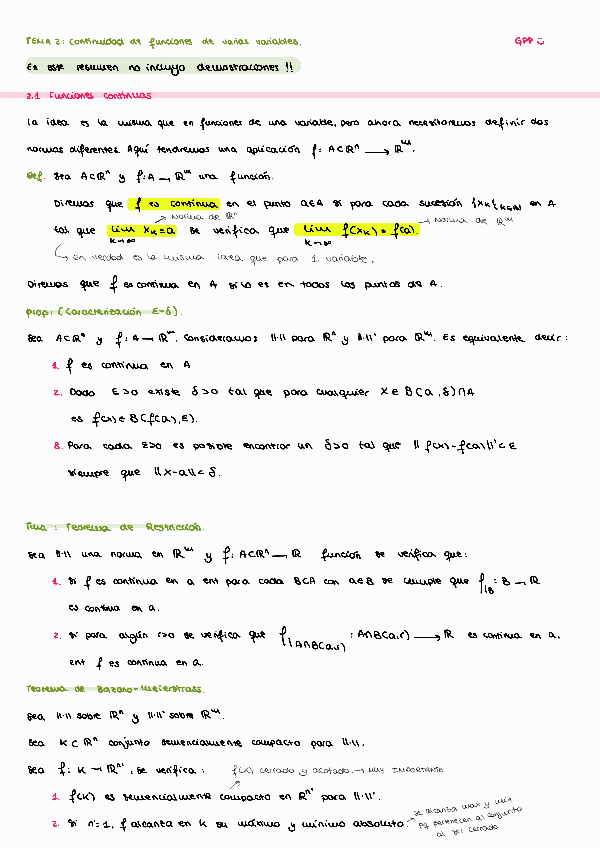 TEMA 2: Continuidad de funciones de varias variables. GPP
En este resumen no incluyo demostraciones !!
2.1 Funciones continuas
La idea es la misma que en funciones de una variable, pero ahora necesitaremos definir dos
normas diferentes. Aquí tendremos una aplicación f: A⊂ℝⁿ ⟶ ℝᵐ.
Def. Sea A⊂ℝⁿ y f: A → ℝᵐ una función.
Diremos que f es continua en el punto a∈A si para cada sucesión {xₖ}ₖ∈ℕ en A
tal que lim xₖ = a se verifica que lim f(xₖ) = f(a).
k→∞ k→∞
norma de ℝⁿ → norma de ℝᵐ
En verdad es la misma idea que para 1 variable.
Diremos que f es continua en A si lo es en todos los puntos de A.
prop: (Caracterización ε-δ).
Sea A⊂ℝⁿ y f: A → ℝᵐ. Consideramos ||·|| para ℝⁿ y ||·||' para ℝᵐ. Es equivalente decir:
1. f es continua en A
2. Dado ε>0 existe δ>0 tal que para cualquier x ∈ B(a, δ)∩A
es f(x) ∈ B(f(a), ε).
3. Para cada ε>0 es posible encontrar un δ>0 tal que || f(x)-f(a)||' < ε
siempre que ||x-a|| < δ.
Tma : Teorema de Restricción.
Sea ||·|| una norma en ℝᵐ y f: A⊂ℝⁿ → ℝ función se verifica que:
1. Si f es continua en a ent para cada B⊂A con a∈B se cumple que f|B : B → ℝ
es continua en a.
2. Si para algún r>0 se verifica que f|A∩B(a,r) : A∩B(a,r) ⟶ ℝ es continua en a,
ent f es continua en a.
Teorema de Bolzano-Weierstrass.
Sea ||·|| sobre ℝⁿ y ||·||' sobre ℝᵐ.
Sea K⊂ℝⁿ conjunto secuencialmente compacto para ||·||.
Sea f: K → ℝⁿ', se verifica: f(K) cerrado y acotado → MUY IMPORTANTE
1. f(K) es secuencialmente compacto en ℝⁿ' para ||·||'.
2. Si n'=1, f alcanza en K su máximo y mínimo absoluto.
se alcanza max y min
pq pertenecen al conjunto
al ser cerrado